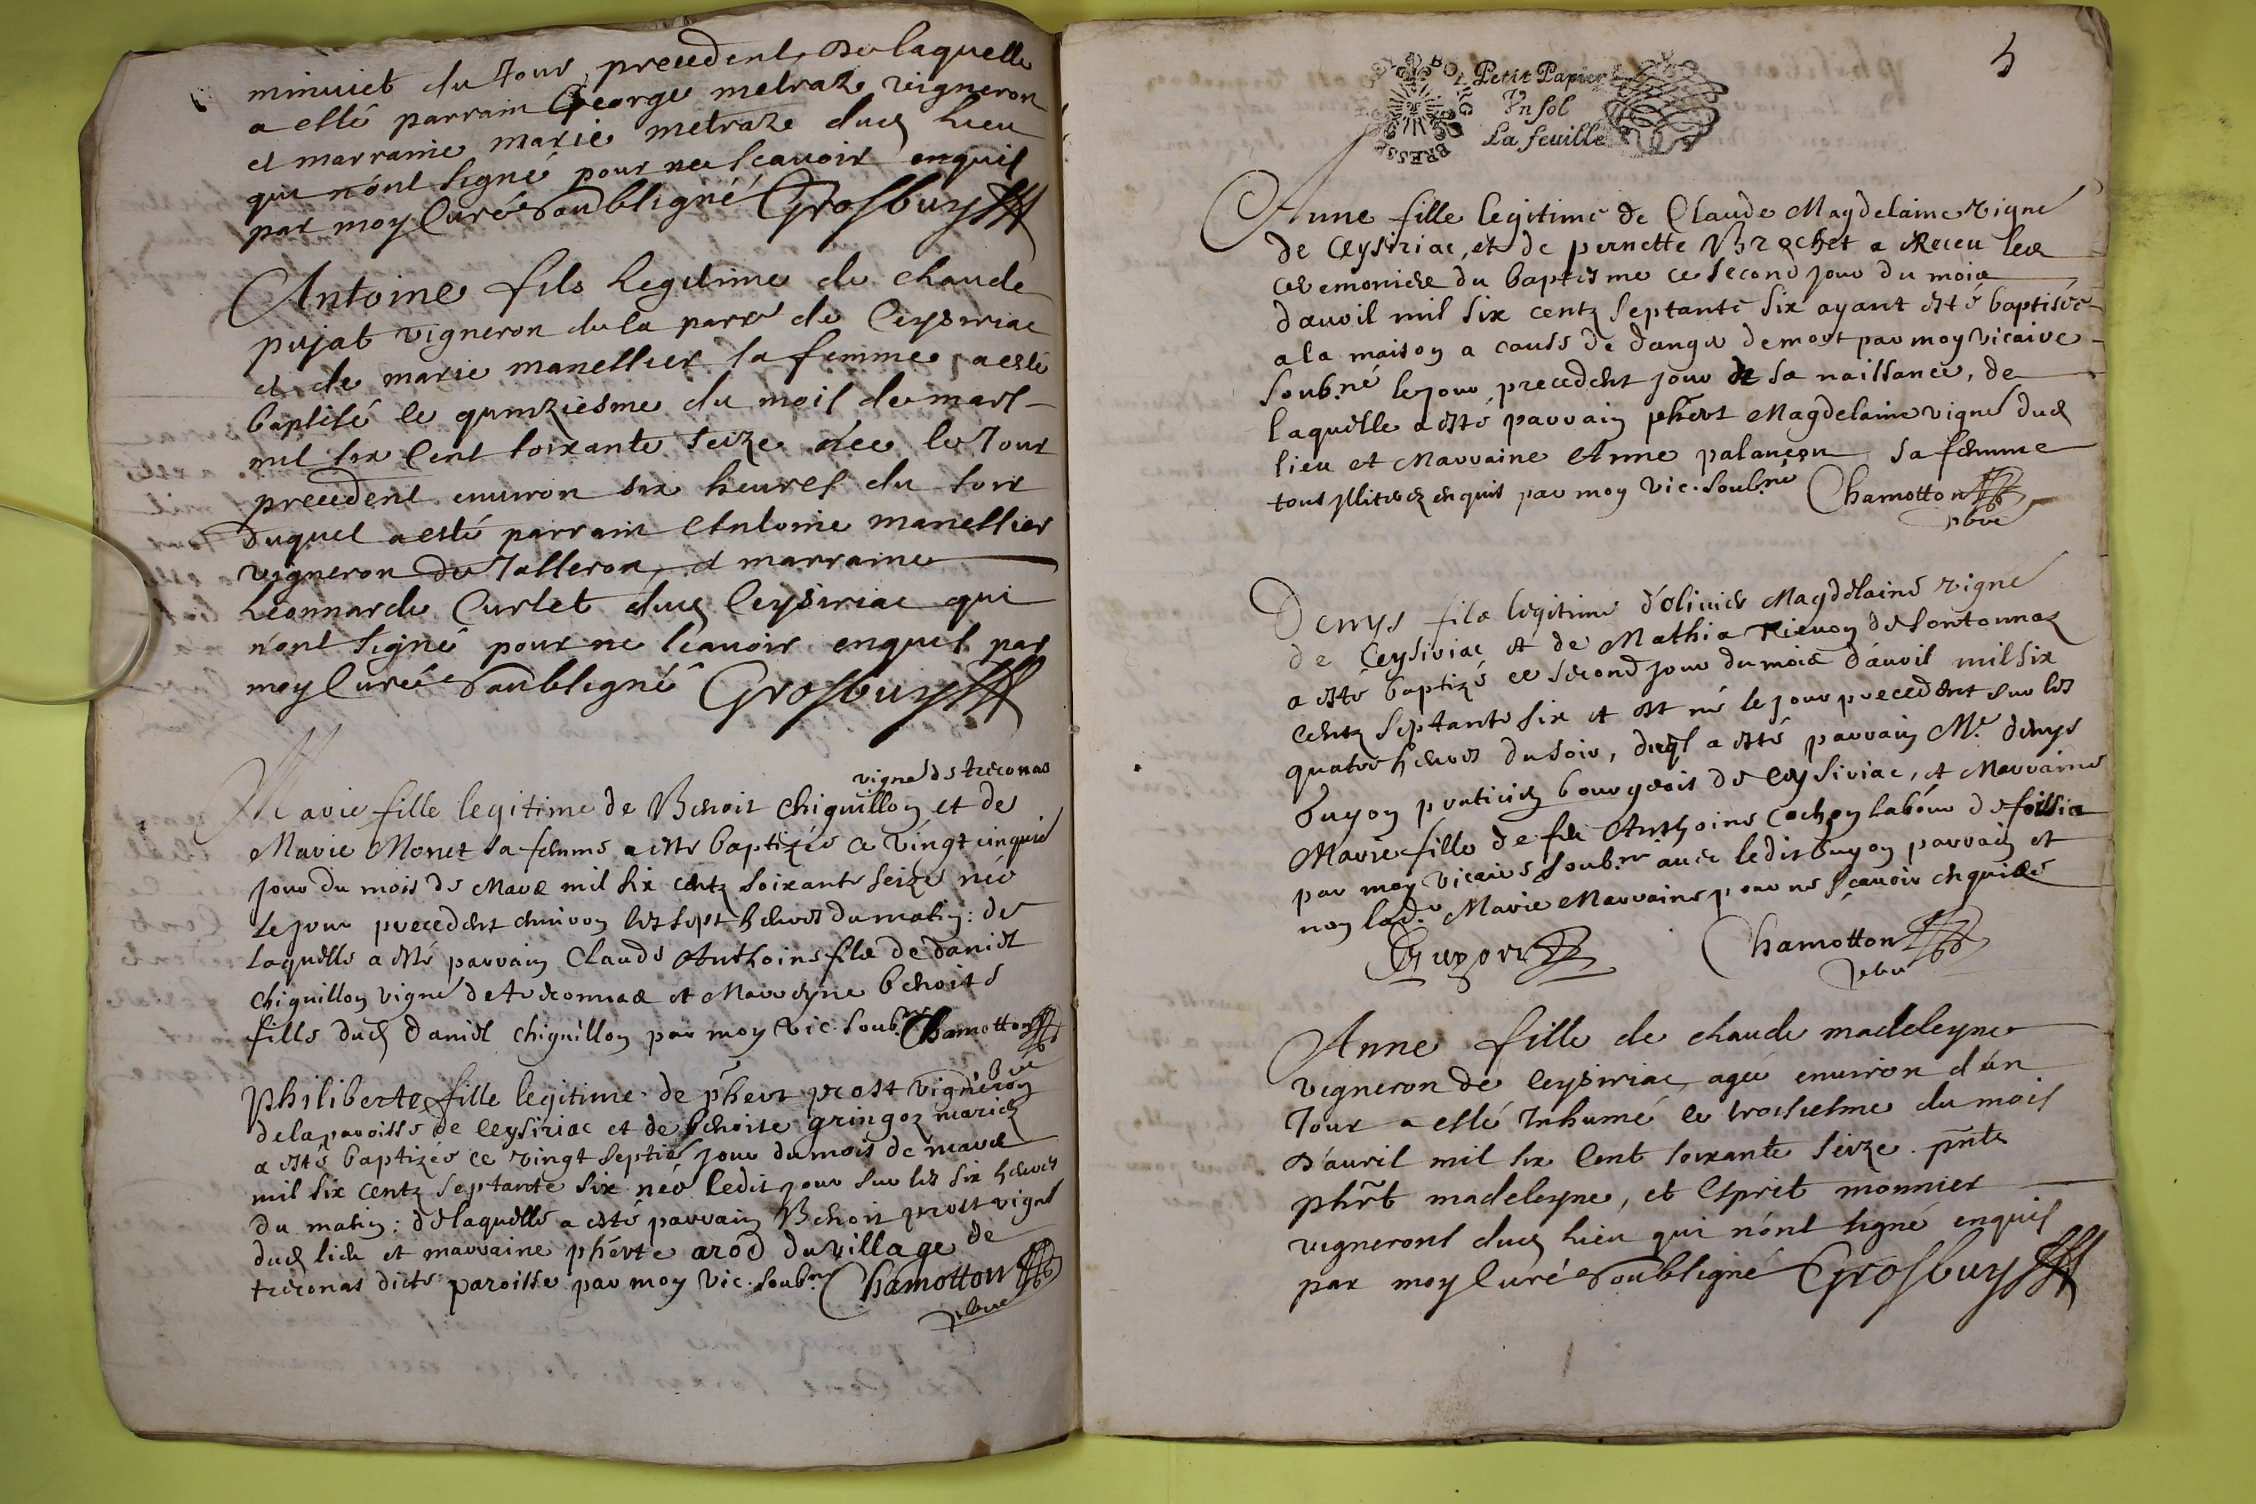 minuict du Jour precedent, De laquelle
a esté parrain George metraz vigneron
et marraine marie metraze dud lieu
qui n'ont signé pour ne scauoir enquis
par moy Curé soubsigné Grosbuys
Antoine fils legitime de claude
pujat vigneron de la parr de Ceysiriac
et de marie manessier sa femme, a esté
baptisé le quinziesme du mois de mars
mil six cent soixante seize née le Jour
precedent enuiron six heures du soir
Duquel a esté parrain Antoine manessier
vigneron de Jasseron, et marraine
Leonnarde Curlet dud Ceysiriac qui
n'ont signé pour ne scauoir enquis par
moy Curé soubsigné Grosbuys
vigné de treconas
Marie fille legitime de Benoit chiquillon et de
Marie Monet sa femme a esté baptizée ce vingt cinquié
jour du mois de Mars mil six centz soixante seize née
le jour precedent enuiron les sept heures du matin: de
laquelle a esté parrain Claude Anthoine fils de daniel
chiquillon vigné de treconnas et Marreyne benoite
fille dud daniel chiquillon par moy vic. soub.né Chamotton
pbre
Philiberte fille legitime de phert prost vigneron
de la paroisse de Ceysiriac et de benoite gringoz mariez
a esté baptizée ce vingt septié jour du mois de mars
mil six centz septante six née ledit jour sur les six heures
du matin: de laquelle a esté parrain Benoit prost vigné
dud lieu et marraine pherte arod du village de
treconas dicte paroisse par moy vic. soub.né Chamotton
pbre
5
BOVRG BRESSE
Petit Papier
Vn sol
La feuille
Anne fille legitime de Claude Magdelaine vigné
de Ceysiriac, et de pernette Brochet a Receu les
ceremonies du baptesme ce second jour du mois
dauril mil six centz septante six ayant esté baptisée
a la maison a cause de danger de mort par moy vicaire
soub.né le jour precedent jour de sa naissance, de
laquelle a esté parrain phert Magdelaine vigné dud
lieu et Marraine Anne palançon sa femme
tous jllitérez enquis par moy vic. soub.né Chamotton
pbre
Denys fils legitime d'oliuier Magdelaine vigné
de Ceysiriac et de Mathia Rieuoy de sontonnaz
a esté baptizé ce second jour du mois d'auril mil six
centz septante six et est né le jour precedent sur les
quatre heures du soir, duql a esté parrain Mr. denys
Guyon praticien bourgeois de Ceysiriac, et Marraine
Marie fille de feu Anthoine cochon labour de foissia
par moy vicaire soub.né auec ledit Guyon parrain et
non lad.e Marie Marraine pour ne scauoir enquise
Guyon Chamotton
pbre
Anne fille de claude madeleyne
vigneron de Ceysiriac, agée enuiron d'un
Jour a esté Inhumé le troisiesme du mois
D'auril mil six cent soixante seize. pnte
phrt madeleyne, et Esprit monnier
vignerons dud lieu qui n'ont signé enquis
par moy Curé soubsigné Grosbuys